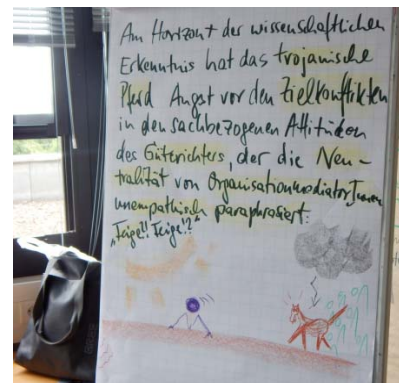 Am Horizont der wissenschaftlichen
Erkenntnis hat das trojanische
Pferd Angst vor den Zielkonflikten
in den sachbezogenen Attitüden
des Güterichters, der die Neu-
tralität von OrganisationmediatorInnen
unempathisch paraphrasiert:
"Feige!! Feige!?"